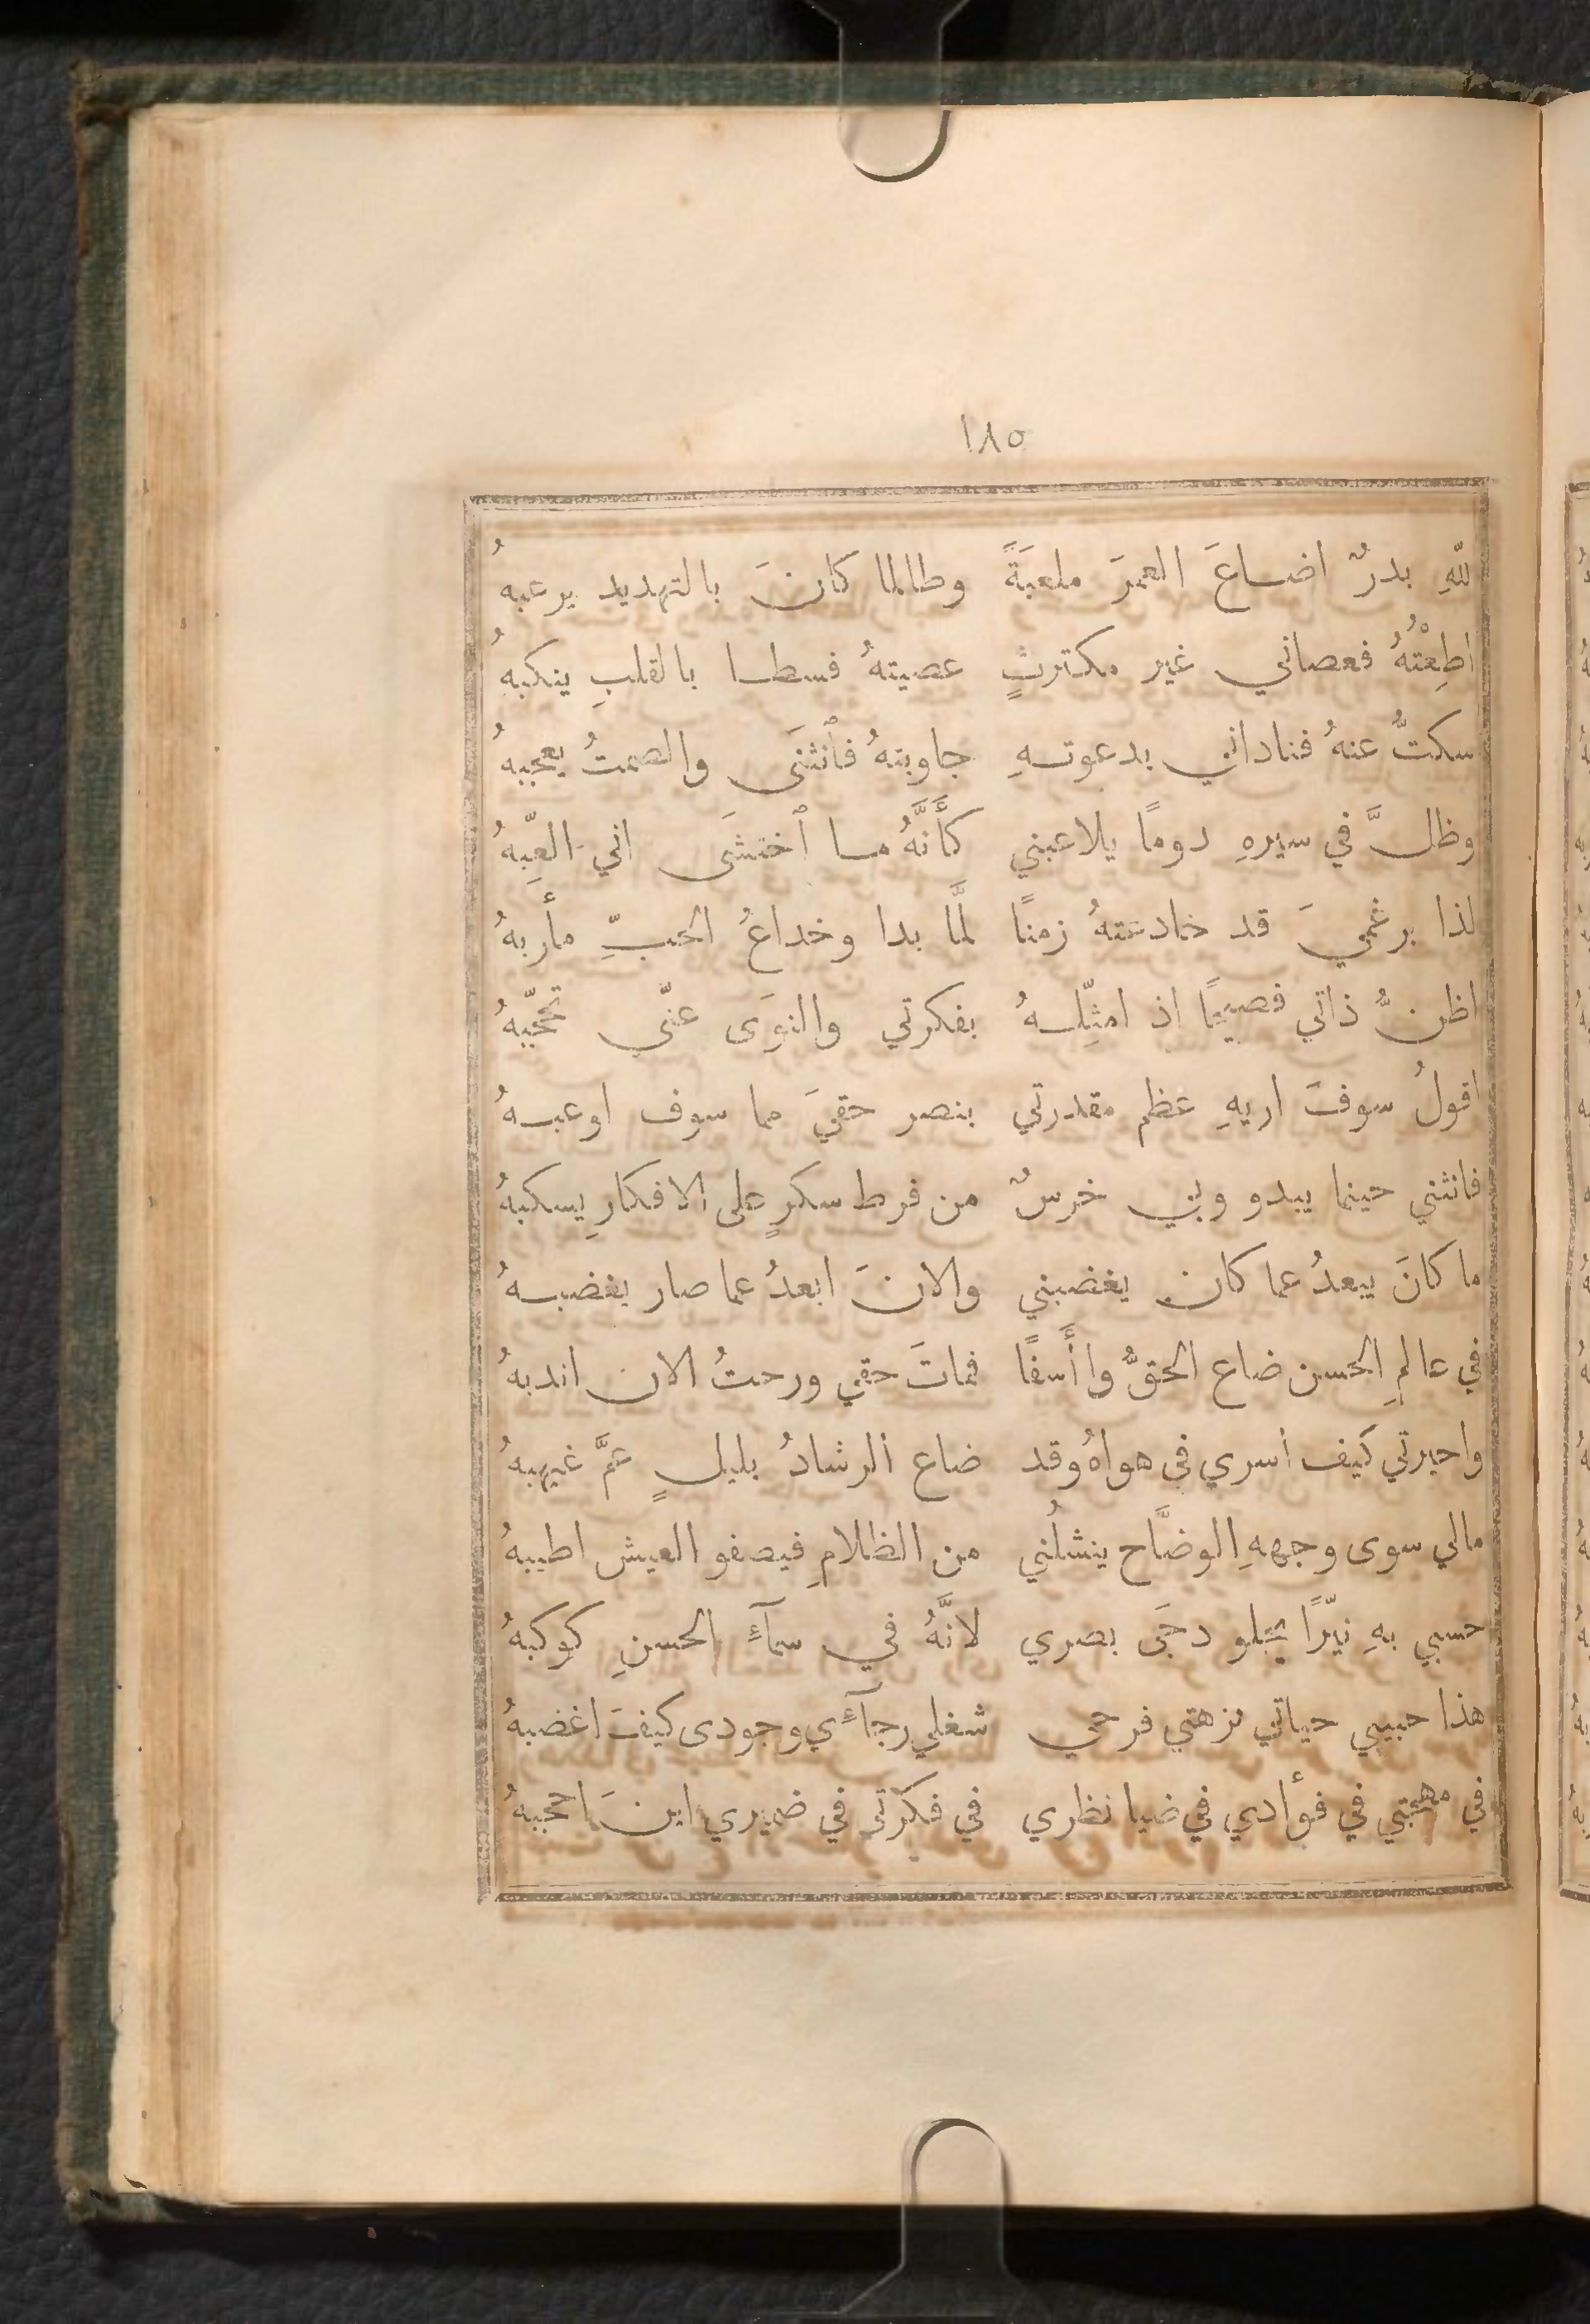 ١٨٥
للّهِ بدرٌ اضاعَ العمرَ ملعبَةً وطالما كانَ بالتهديد يرعبهُ
اطِعْتُهُ فعصاني غير مكترثٍ عصيتهُ فسطا بالقلبِ ينكبهُ
سكتُّ عنهُ فناداني بدعوتهِ جاوبتهُ فٱنثنَى والصمتُ يعجبهُ
وظلَّ في سيرهِ دومًا يلاعبني كأَنَّهُ ما ٱختشَى اني العِّبهُ
لذا برغميَ قد خادعتهُ زمنًا لمَّا بدا وخداعُ الحبِّ مأربهُ
اظنُّ ذاتي فصيحًا اذ امثِّلهُ بفكرتي والنوَى عنّي تحجّبهُ
اقولُ سوفَ اريهِ عظم مقدرتي بنصر حقيَ مما سوف اوعبهُ
فانثني حينما يبدو وبي خرسٌ من فرط سكرٍ على الافكارِ يسكبهُ
ما كانَ يبعدُ عما كان يغضبني والانَ ابعدُ عما صار يغضبهُ
في عالمِ الحسن ضاع الحقُّ وا أَسفًا فماتَ حقي ورحتُ الان اندبهُ
واحيرتي كيف اسري في هواهُ وقد ضاع الرشادُ بليلٍ عمَّ غيهبهُ
مالي سوى وجههِ الوضَّاح ينشلُني من الظلامِ فيصفو العيش اطيبهُ
حسبي بهِ نيّرًا يجلو دجَى بصري لانَّهُ في سمآءِ الحسنِ كوكبهُ
هذا حبيبي حياتي نزهتي فرحي شغلي رجآءِي وجودى كيفَ اغضبهُ
في مهجتي في فوأدي في ضيا نظري في فكرتي في ضميري اينَ احجبهُ